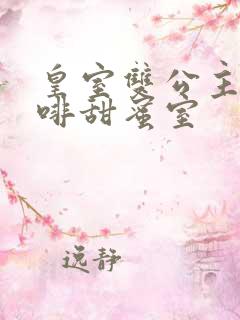 皇室雙公主
啡甜蜜室
逸静